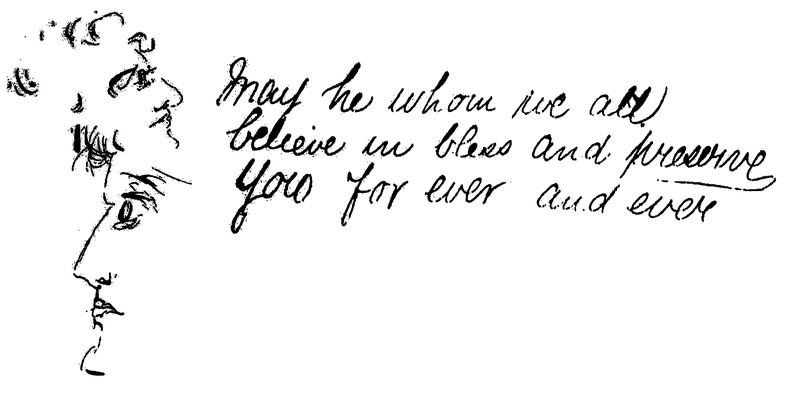 May he whom we all
believe in bless and preserve
You for ever and ever